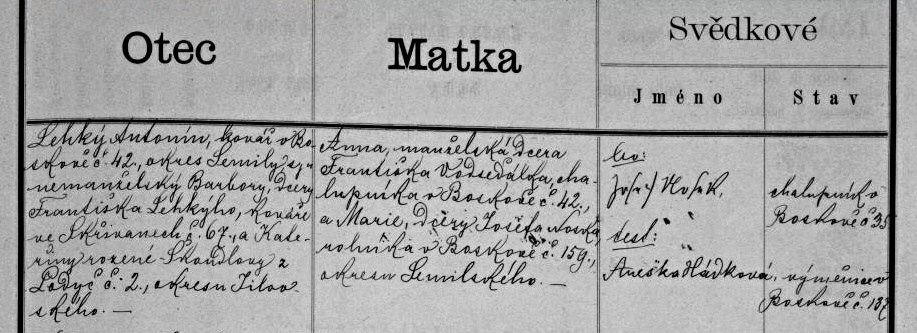 Otec
Matka
Svědkové
Jméno
Stav
Lehký Antonín, kovář v Bo-
skově č. 42., okres Semily syn
nemanželský Barbory, dcery
Františka Lehkýho, kováře
ve Skřivanech č. 67., a Kate-
řiny rozené Skondlovy z
Lodyč č. 2., okresu Jilov-
ského. —
Anna, manželská dcera
Františka Vodseďálka, cha-
lupníka v Boskově č. 42.,
a Marie, dcery Josefa Noska,
rolníka v Boskově č. 159.,
okresu Semilského. —
Josef Nosek,
chalupník v
Boskově č. 35
test:
Anežka Hádková,
výměnice v
Boskově č. 137